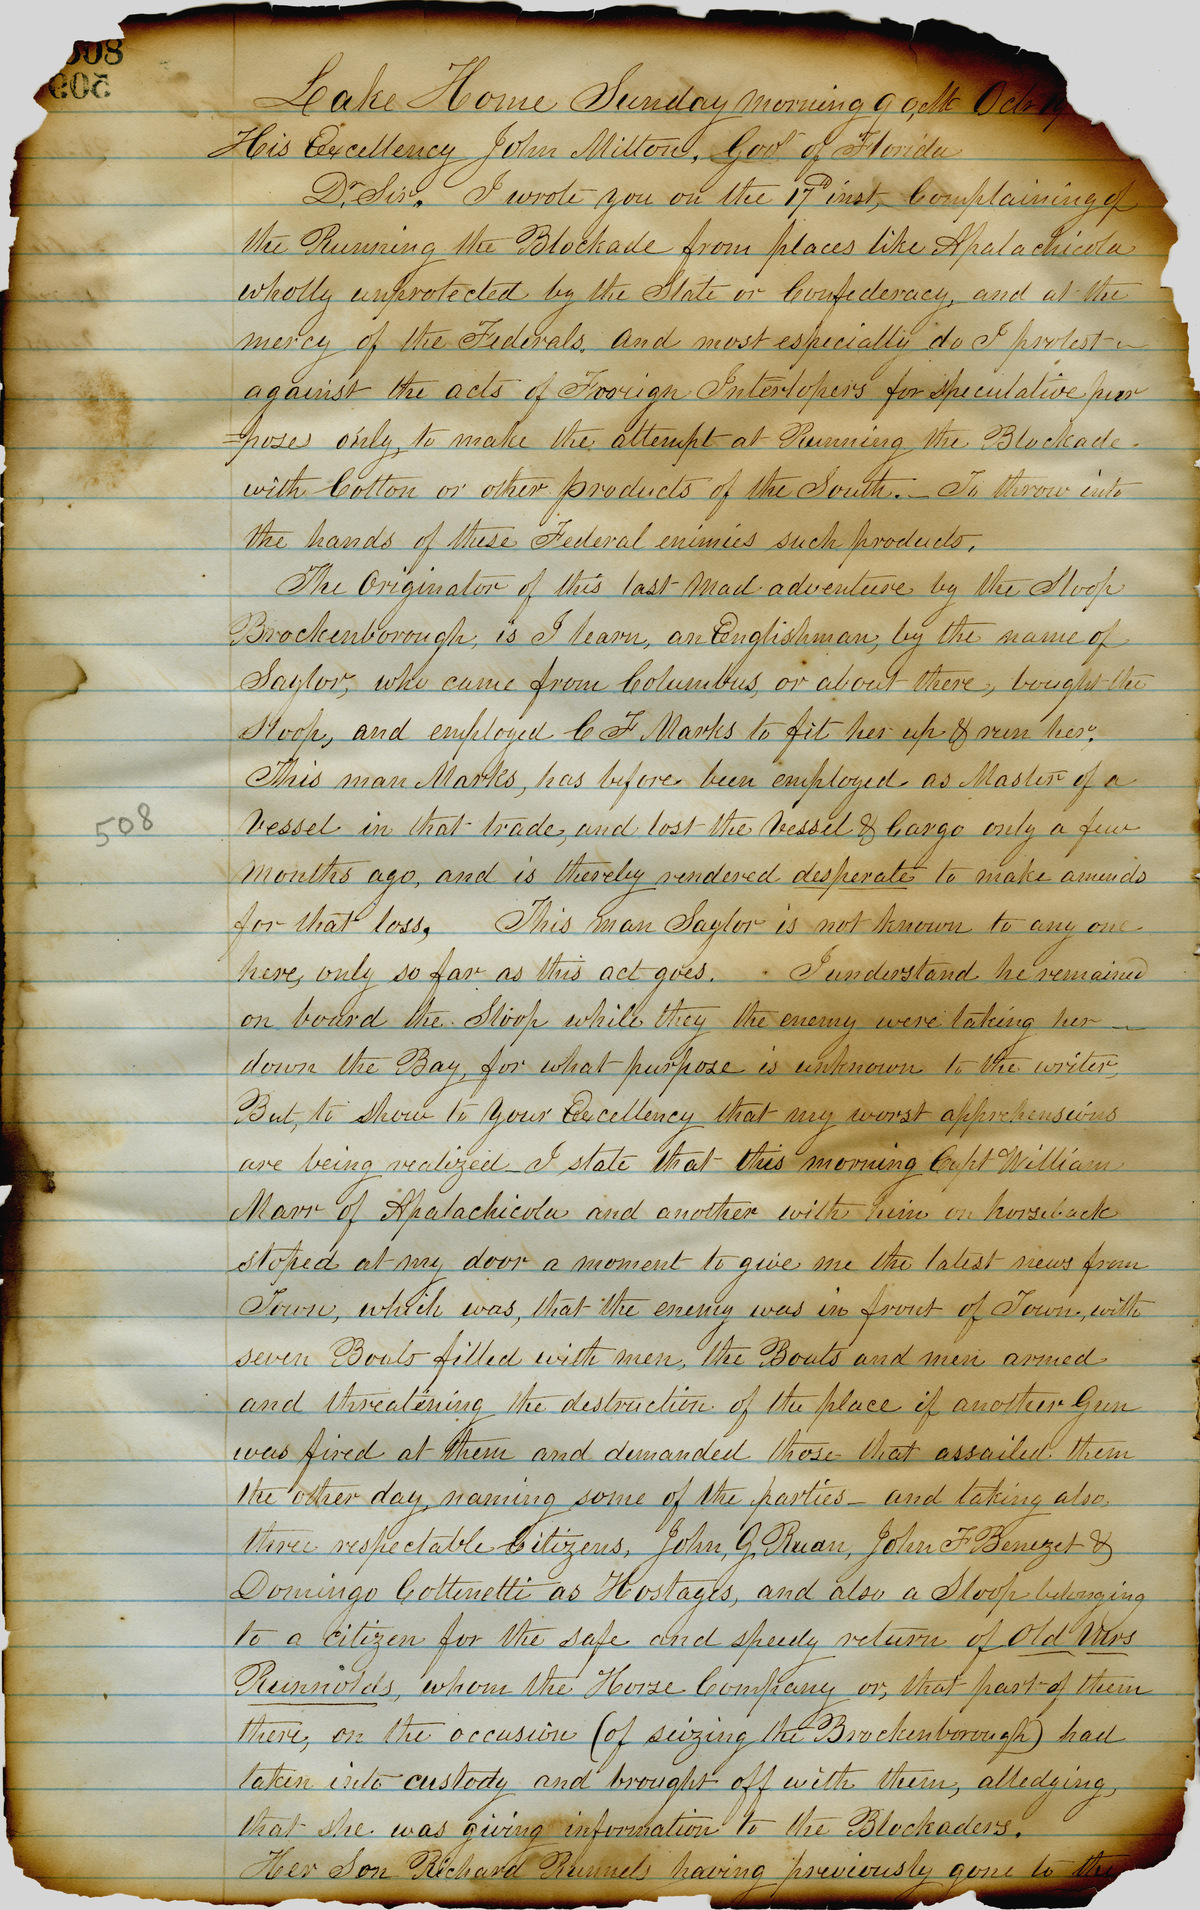 508
509
Lake Home Sunday morning 9 o,clk Octr 19
His Excellency John Milton, Govr of Florida
Dr Sir, I wrote you on the 17th inst, Complaining of
the Running the Blockade from places like Apalachicola
wholly unprotected by the State or Confederacy, and at the
mercy of the Federals. And most especially do I protest
against the acts of Forign Interlopers for speculative pur
=poses only, to make the attempt at Running the Blockade
with Cotton or other products of the South. — To throw into
the hands of these Federal enimies such products.
The Originator of this last mad adventure by the Sloop
Brockenborough, is I learn, an Englishman, by the name of
Saylor, who came from Columbus, or about there, bought the
Sloop, and employed C F Marks to fit her up & run her.
This man Marks, has before been employed as Master of a
508
Vessel in that trade, and lost the Vessel & Cargo only a few
months ago, and is thereby rendered desperate to make amends
for that loss, This man Saylor is not known to any one
here, only so far as this act goes. I understand he remained
on board the Sloop while they the enemy were taking her
down the Bay, for what purpose is unknown to the writer,
But, to show to your Excellency that my worst apprehensions
are being realized — I state that this morning Capt William
Marr of Apalachicola and another with him on horseback
stoped at my door a moment to give me the latest news from
Town, which was, that the enemy was in front of Town, with
seven Boats filled with men, the Boats and men armed
and threatening the destruction of the place if another Gun
was fired at them and demanded those that assailed them
the other day, naming some of the parties — and taking also
three respectable Citizens, John, G, Ruan, John F Benezet &
Domingo Cottenetti as Hostages, and also a Sloop belonging
to a citizen for the safe and speedy return of Old Mrs
Runnolds, whom the Horse Company or, that part of them
there, on the occasion (of seizing the Brockenborough) had
taken into custody and brought off with them, alledging,
that she was giving information to the Blockaders.
Her Son Richard Runnels having previously gone to the